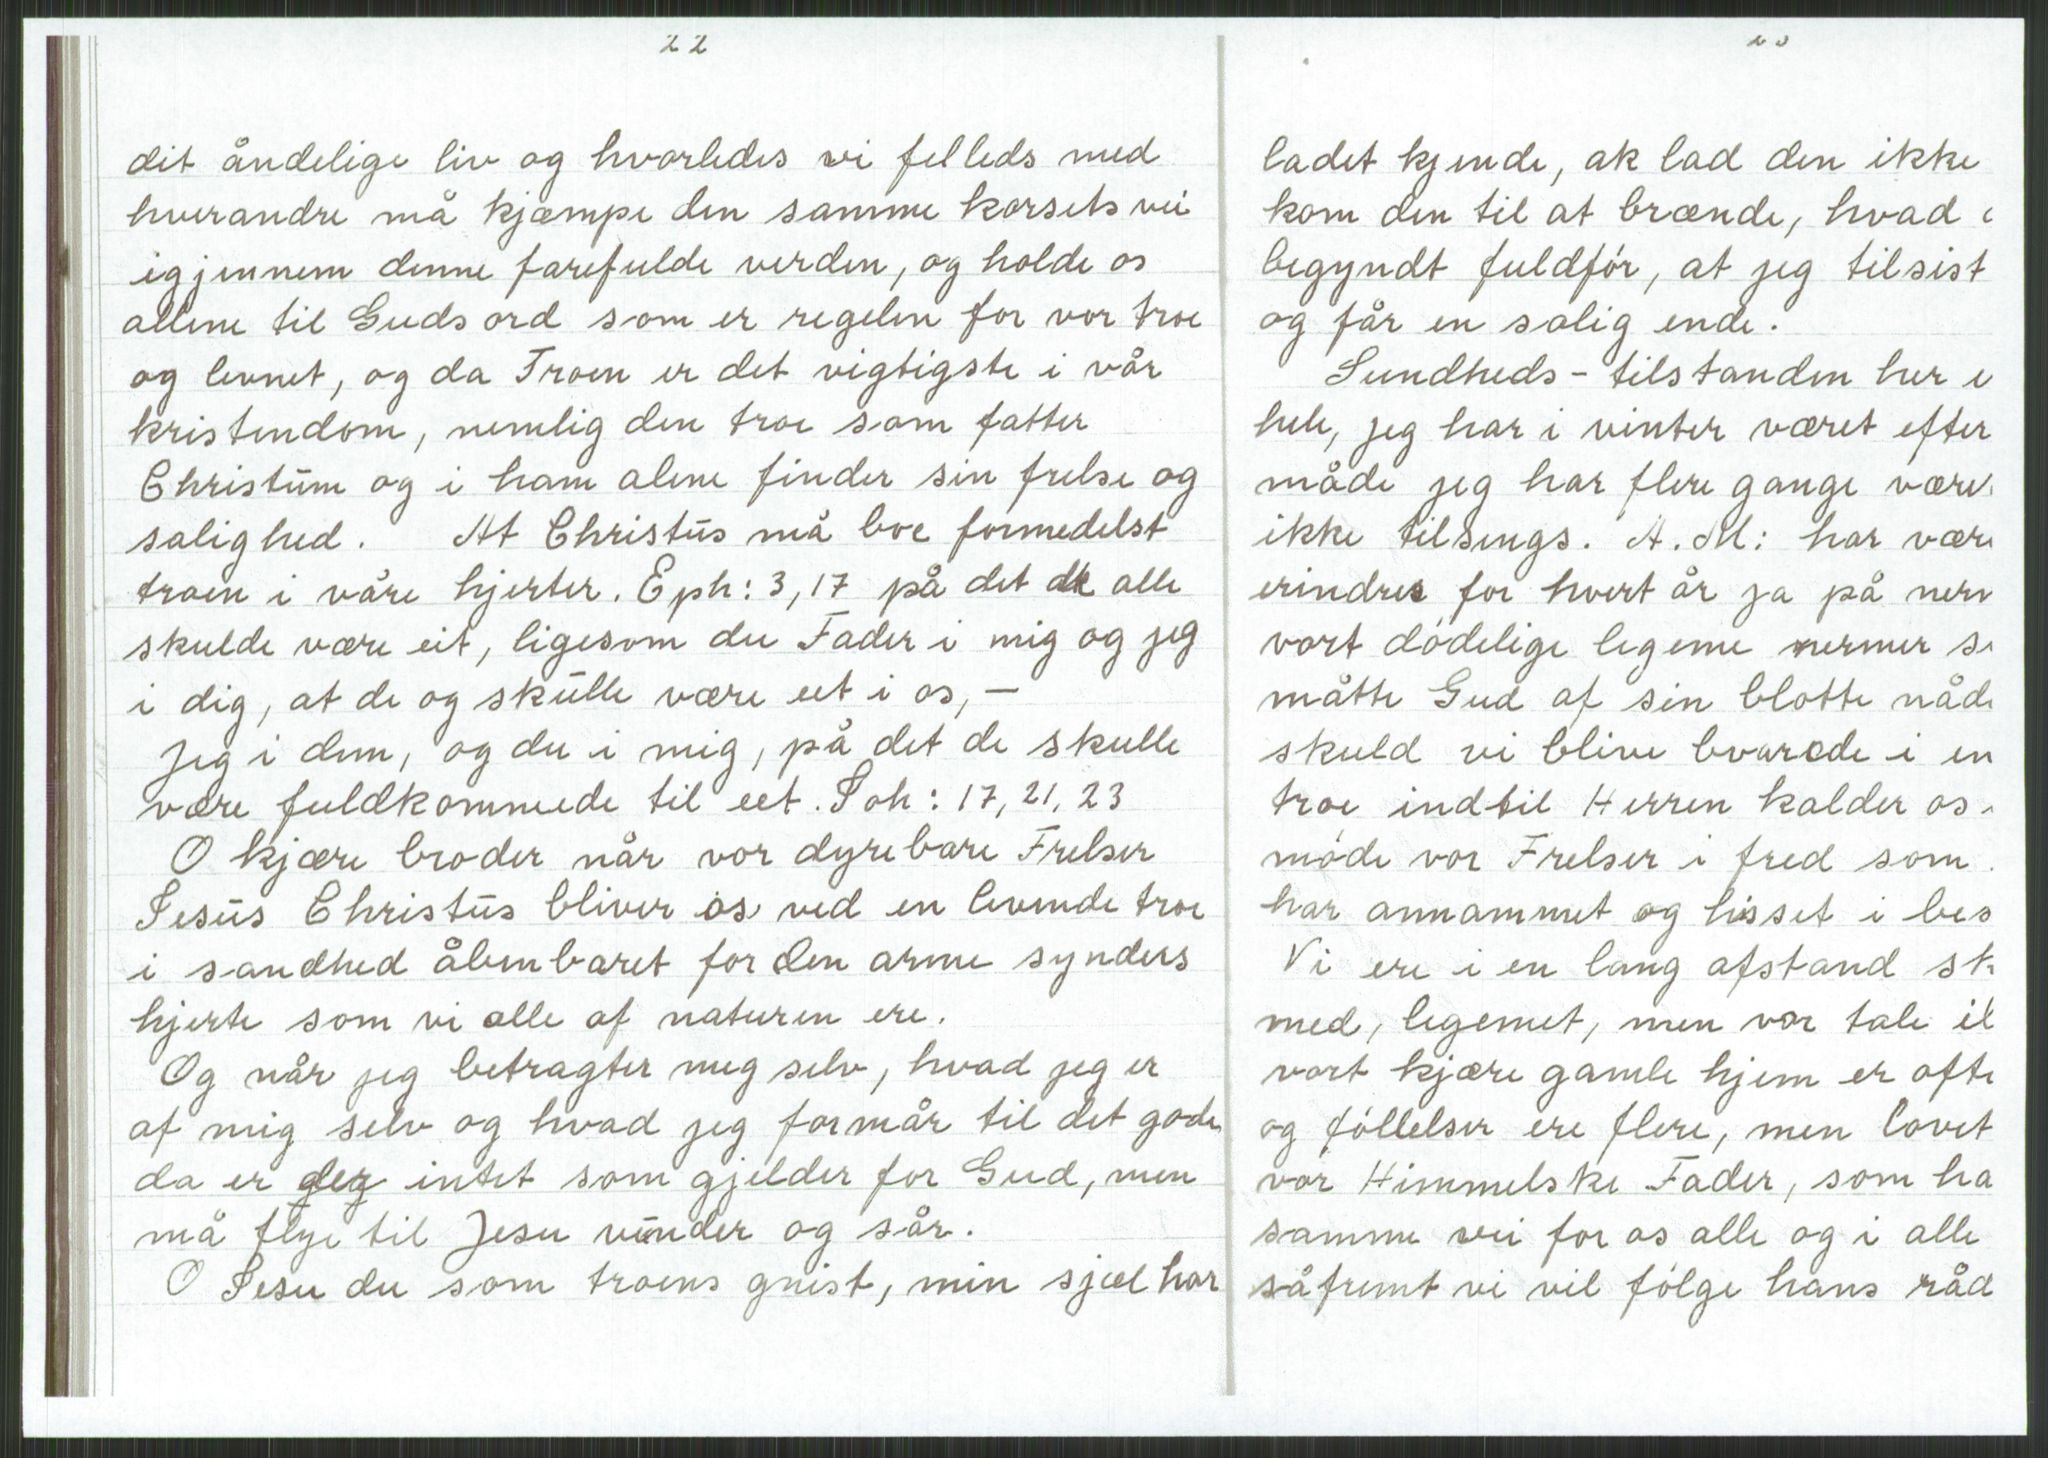 22
dit åndelige liv og hvorledes vi felleds med
hverandre må kjæmpe den samme korsets vei
igjennem denne farefulde verden, og holde os
allene til Guds ord som er regelen for vor troe
og levnet, og da Troen er det vigtigste i vår
kristendom, nemlig den troe som fatter
Christūm og i ham alene finder sin frelse og
salighed. At Christūs må boe formedelst
troen i våre hjerter. Eph: 3,17 på det de alle
skulde være eit, ligesom du Fader i mig og jeg
i dig, at de og skūlle være eet i os, —
Jeg i dem, og du i mig, på det de skulle
være fuldkommede til eet. Joh: 17, 21, 23
O kjære broder når vor dyrebare Frelser
Jesūs Christūs bliver os ved en levende troe
i sandhed åbenbaret for den arme synders
hjerte som vi alle af naturen ere.
Og når jeg betragter meg selv, hvad jeg er
af mig selv og hvad jeg formår til det gode
da er jeg intet som gjelder for Gud, men
må flye til Jesu vūnder og sår.
O Jesu du som troens gnist, min sjæl har
ladet kjende, ak lad den ikke
kom den til at brænde, hvad
begyndt fuldfór, at jeg tilsist
og får en salig ende.
Sundheds-tilstanden her
hele, jeg har i vinter været efter
måde jeg har flere gange være
ikke tilsengs. A. M: har være
erindres for hvert år ja på nerv
vort dódelige legeme nermer s
måtte Gud af sin blotte nåde
skuld vi blive bvarede i en
troe indtil Herren kalder os
móde vor Frelser i fred som
har annammet og hisset i bes
Vi ere i en lang afstand sk
med, legemet, men vor tale il
vort kjære gamle hjem er ofte
og fóllelser ere flere, men lovet
vór Himmelske Fader, som ha
samme vei for os alle og i alle
såfremt vi vil fólge hans råd